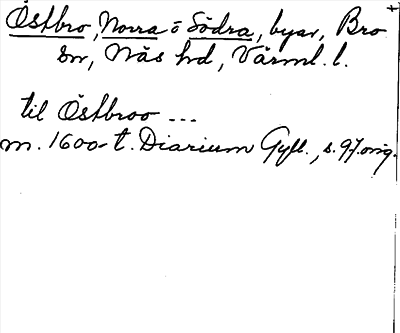 Östbro, Norra o Södra, byar, Bro
sn, Näs hd, Värml. l.
til Östbroo ...
m. 1600-t. Diarium Gyll., s. 97 orig.